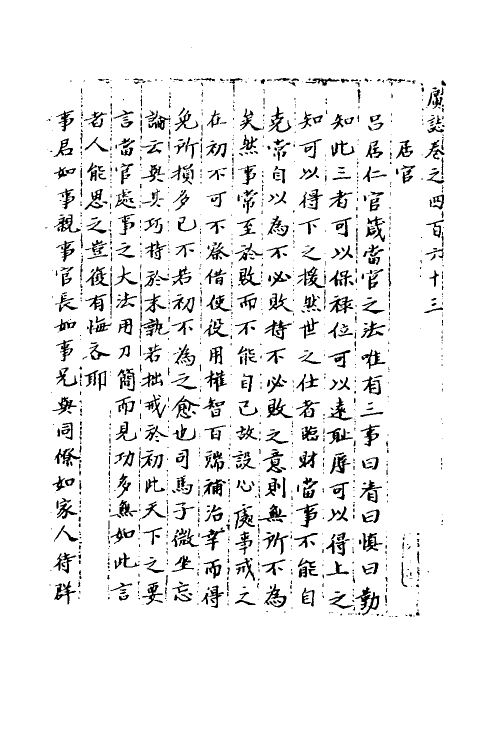 廣誌卷之四百六十三
居官
呂居仁官箴當官之法唯有三事曰清曰慎曰勤
知此三者可以保祿位可以遠耻辱可以得上之
知可以得下之援然世之仕者臨財當事不能自
克常自以為不必敗持不必敗之意則無所不為
矣然事常至於敗而不能自已故設心處事戒之
在初不可不察借使役用權智百端補治幸而得
免所損多已不若初不為之愈也司馬子微坐忘
論云與其巧持於末孰若拙戒於初此天下之要
言當官處事之大法用力簡而見功多無如此言
者人能思之豈復有悔吝耶
事君如事親事官長如事兄與同僚如家人待群